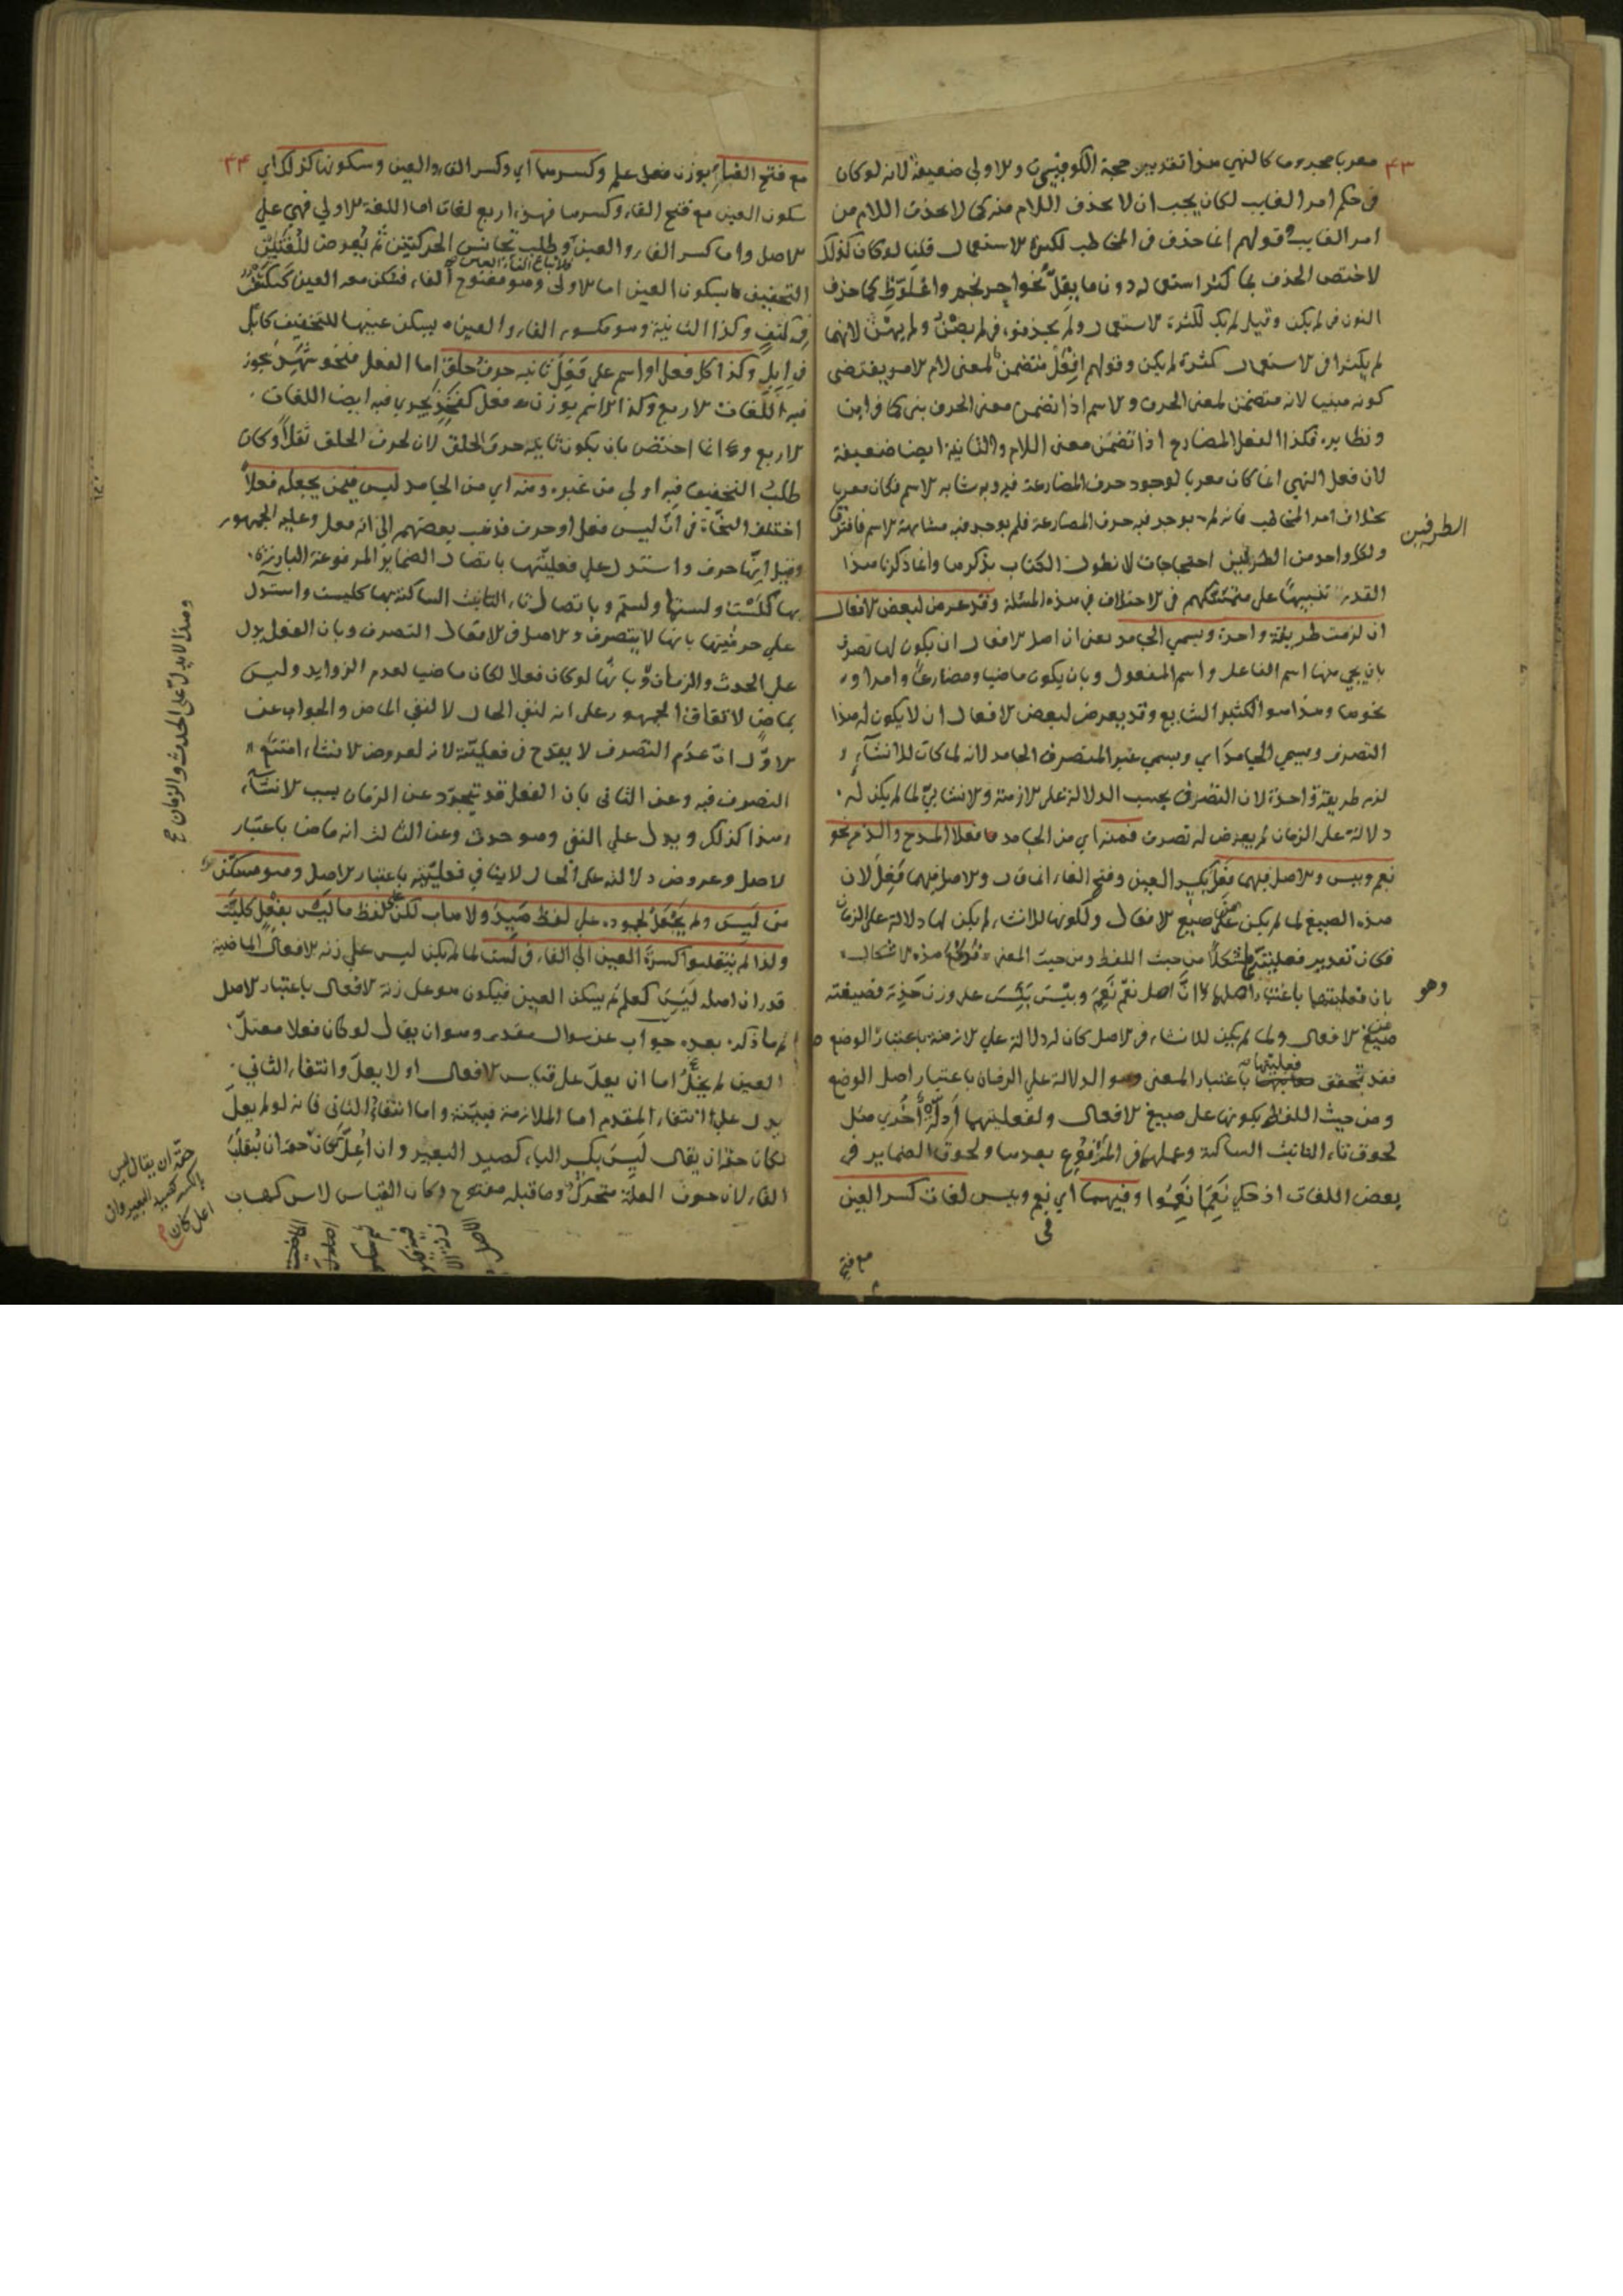 ٤٣
معربا مجزوما كالنهي هذا تقدير حجة الكوفيين والاولى ضعيفة لانه لو كان
في حكم امر الغايب لكان يجب ان لا يحذف اللام منه كما لا يحذف اللام من
امر الغايب وقولهم انما حذف في المخاطب لكثرة الاستعمال قلنا لو كان كذلك
لاختص الحذف بما كثر استعماله دون ما يقل نحو احرنجم واعلوط كما حذف
النون في لم يكن وقيل لم يك لكثرة الاستعمال ولم يحذفوه في لم يصن ولم يهن لانهما
لم يكثرا في الاستعمال كثرة لم يكن وقولهم افعل متضمن لمعنى لام الامر يقتضى
كونه مبنيا لانه متضمن لمعنى الحرف والاسم اذا تضمن معنى الحرف بنى كما في اين
ونظايره فكذا الفعل المضارع اذا تضمن معنى اللام والثانية ايضا ضعيفة
لان فعل النهي انما كان معربا لوجود حرف المضارعة فيه وبه شابه الاسم فكان معربا
بخلاف امر المخاطب فانه لم يوجد فيه حرف المضارعة فلم يوجد فيه مشابهة الاسم فافترقا
ولكل واحد من الطرفين احتجاجات لا نطول الكتاب بذكرها وانما ذكرنا هذا
الطرفين
القدر تنبيها على متمسكهم في الاختلاف في هذه المسئلة وقد عرض لبعض الافعال
ان لزمت طريقة واحدة ويسمي الجامد يعني ان اصل الافعال ان يكون لها تصرف
بان يجي منها اسم الفاعل واسم المفعول وبان يكون ماضيا ومضارعا وامرا و
نحوها وهذا هو الكثير الشايع وقد يعرض لبعض الافعال ان لا يكون له هذا
التصرف ويسمي الجامد اي ويسمي غير المتصرف الجامد لانه لما كان للانشاء
لزم طريقة واحدة لان التصرف بحسب الدلالة على الازمنة والانشائي لما لم يكن له
دلالة على الزمان لم يعرض له تصرف فمنه اي من الجامد فعلا المدح والذم نحو
نعم وبيس والاصل فيهما فعل بكسر العين وفتح الفاء انما قال والاصل فيهما فعل لان
هذه الصيغ لما لم يكن على صيغ الافعال ولكونها للانشاء لم يكن لها دلالة على الزمان
فكان تقدير فعليتها مشكلا من حيث اللفظ ومن حيث المعنى هذه الاشكال
بان فعليتها باعتبار اصلها اذ اصل نعم نعم وبئس بئس على وزن حذر فصيغته
وهو
صيغ الافعال ولما لم يكن للانشاء في الاصل كان له دلالة على الازمنة باعتبار الوضع
فقد تحقق فعليتها باعتبار المعنى وهو الدلالة على الزمان باعتبار اصل الوضع
ومن حيث اللفظ بكونها على صيغ الافعال ولفعليتهما ادلة اخرى مثل
لحوق تاء التانيث الساكنة وعملها في المرفوع بعدها ولحوق الضماير في
بعض اللغات اذ حكي نعما نعموا وفيهما اي نعم وبيس لغات كسر العين
مع فتح
٤٤
مع فتح الفاء بوزن فعل علم وكسرهما اي وكسر الفاء والعين وسكونها كذلك اي
سكون العين مع فتح الفاء وكسرها فهذه اربع لغات اما اللغة الاولي فهي علي
الاصل واما كسر الفاء والعين وطلب تجانس الحركتين ثم يعرض للفعلين
فلاتباع الفاء العين
التخفيف بسكون العين اما الاولى وهو مفتوح الفاء فتسكن معه العين ككتف
في كتف وكذا الثانية وهو مكسور الفاء والعين يسكن عينها للتخفيف كابل
في ابل وكذا كل فعل او اسم علي فعل ثانيه حرف حلق اما الفعل فنحو شهد يجوز
فيه اللغات الاربع وكذا الاسم بوزن فعل كفخذ يجري فيه ايضا اللغات
الاربع وانما اختص بان يكون ثانيه حرف الحلق لان لحرف الحلق ثقلا وكان
طلب التخفيف فيه اولي من غيره ومنه اي من الجامد ليس فيمن يجعله فعلا
اختلف النحاة في ان ليس فعل او حرف فذهب بعضهم الي انه فعل وعليه الجمهور
وقيل انها حرف واستدل علي فعليتها باتصال الضماير المرفوعة البارزة
بها كلست ولستما ولستم وباتصال تاء التانيث الساكنة بها كليست واستدل
علي حرفيتها بانها لا يتصرف والاصل في الافعال التصرف وبان الفعل يدل
علي الحدث والزمان وبانها لو كان فعلا لكان ماضيا لعدم الزوايد وليس
وهذا لا يدل على الحدث والزمان صح
بماض لاتفاق الجمهور على انه لنفي الحال لا لنفي الماضي والجواب عن
الاول ان عدم التصرف لا يقدح في فعليته لانه لعروض الانشاء امتنع
التصرف فيه وعن الثاني بان الفعل قد يتجرد عن الزمان بسبب الانشاء
وهذا كذلك ويدل علي النفي وهو حدث وعن الثالث انه ماض باعتبار
الاصل وعروض دلالته على الحال لا ينافي فعليته باعتبار الاصل وهو مسكن
من ليس ولم يجعل لجموده علي لفظ صيد ولا هاب لكن على لفظ ما ليس بفعل كليت
ولذا لم ينقلوا كسرة العين الي الفاء في لست لما لم يكن ليس علي زنة الافعال الماضية
قدر ان اصله ليس كعلم ثم يسكن العين فيكون هو على زنة الافعال باعتبار الاصل
ثم ما ذكره بعده جواب عن سوال مقدر وهو ان يقال لو كان فعلا معتل
العين لم يخل اما ان يعل على قياس الافعال او لا يعل وانتفاء الثاني
يدل علي انتفاء المقدم اما الملازمة فبينة واما انتفاء الثاني فانه لو لم يعل
لكان حقه ان يقال ليس بكسر الياء كصيد البعير وان اعل لكان حقه ان يقلب
حقه ان يقال ليس
بالكسر كصيد البعير وان
اعل كان
الفاء لان حرف العلة متحرك وما قبله مفتوح وكان القياس لاس كهاب